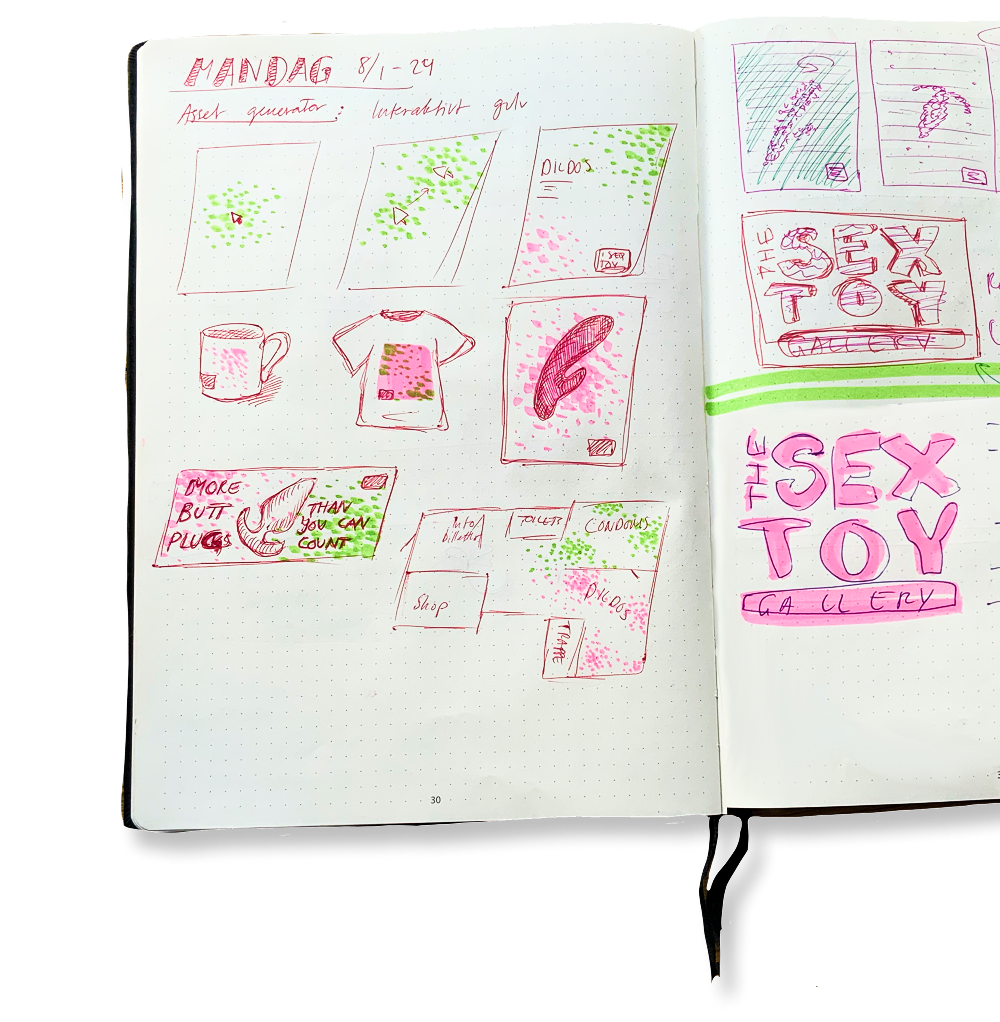 MANDAG 8/1-24
Asset generator: Interaktivt gulv
DILDOS
SEX
TOY
MORE
BUTT
PLUGS
THAN
YOU CAN
COUNT
Info/
billetter
TOILETS
CONDOMS
DILDOS
Shop
TRAPPE
30
THE SEX
TOY
GALLERY
THE SEX
TOY
GALLERY